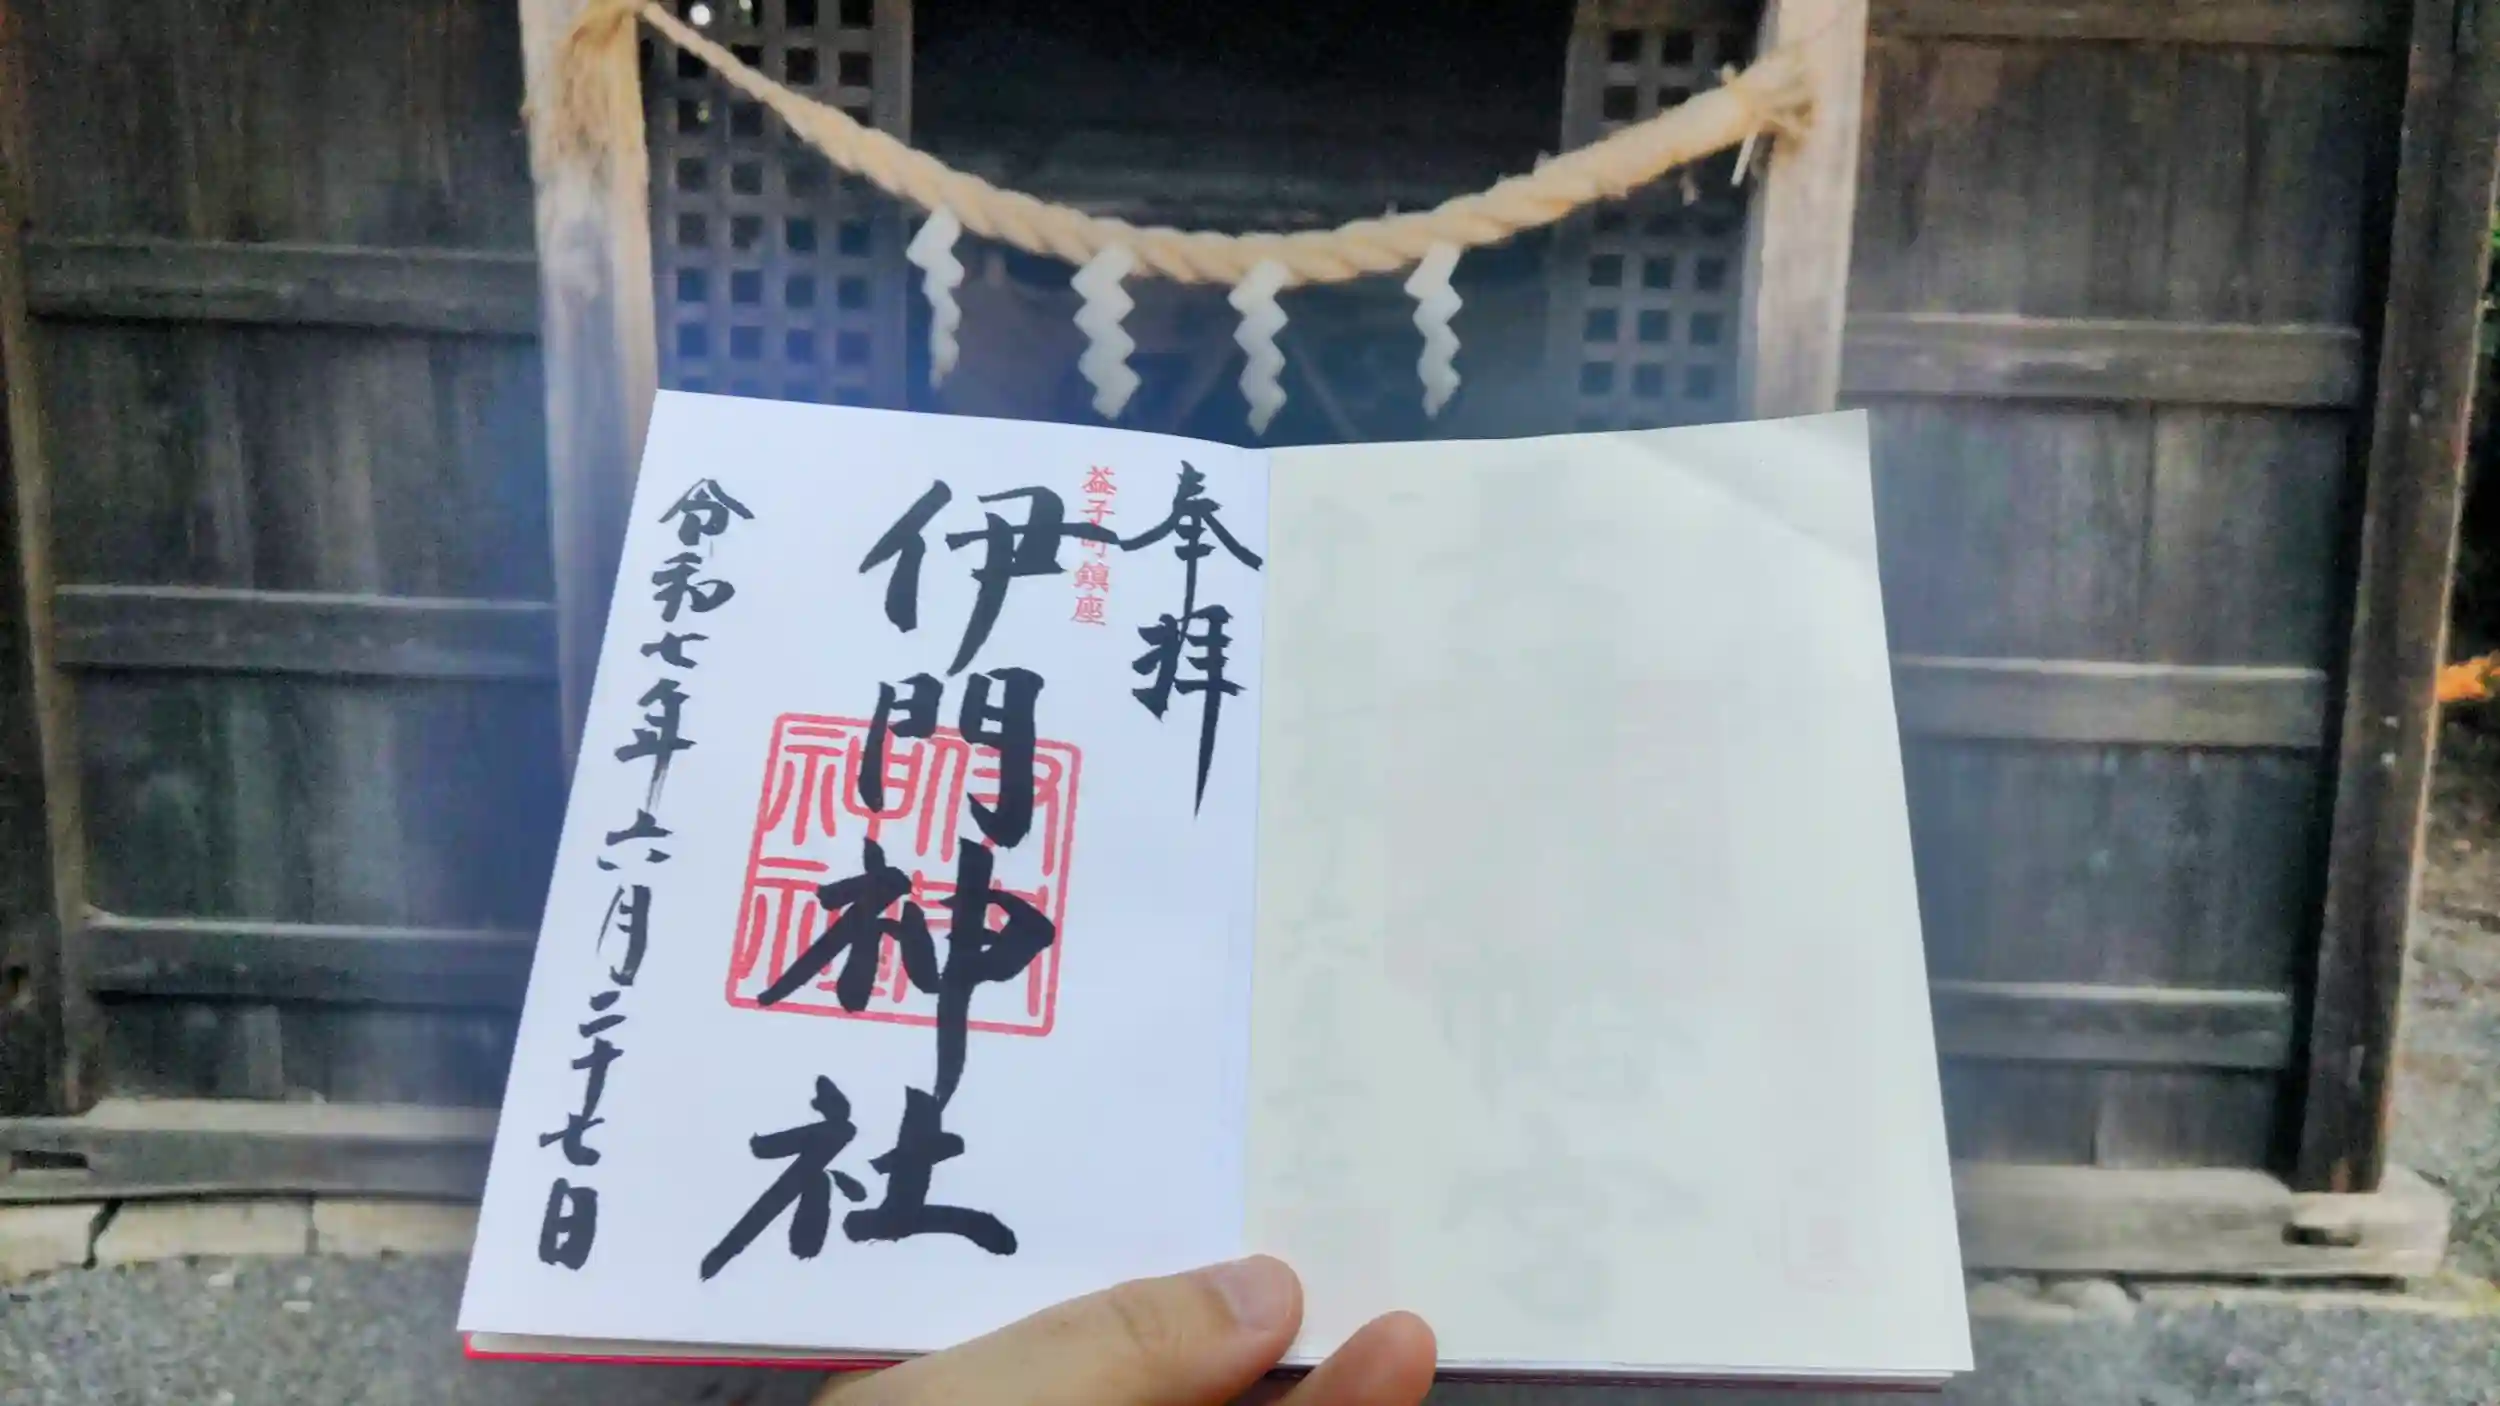 奉拝
益子町鎮座
伊門神社
令和七年六月二十七日